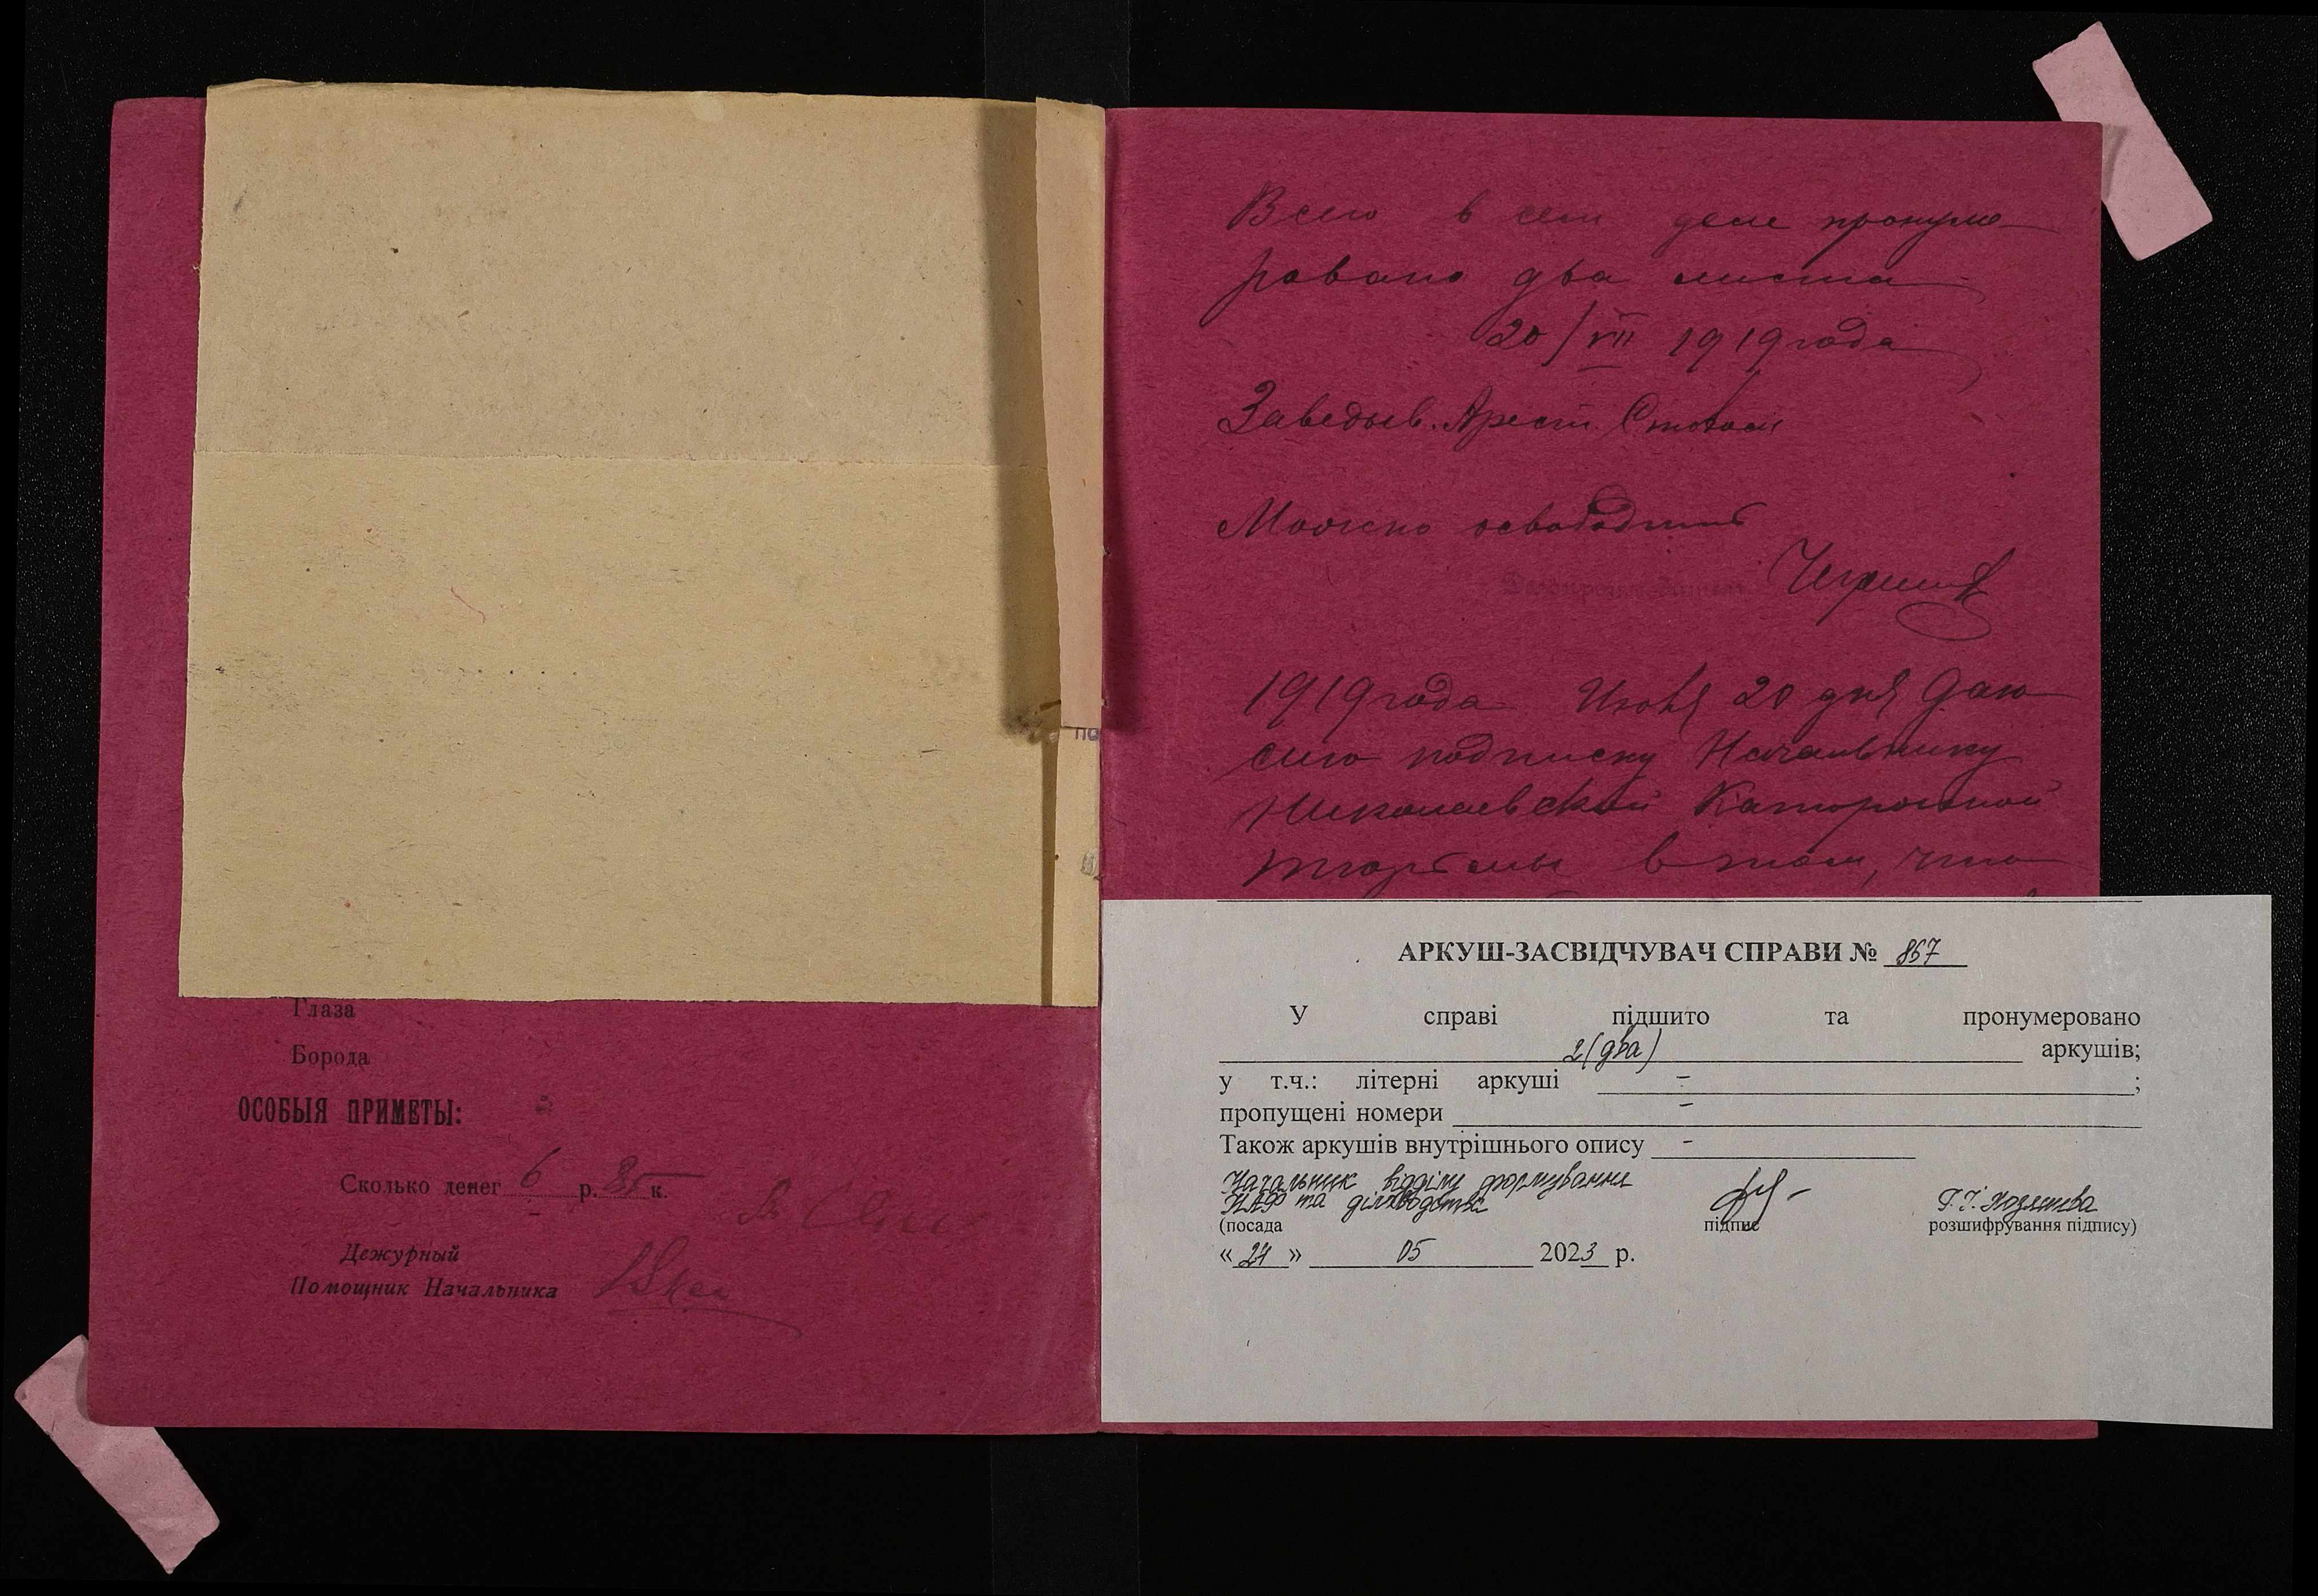 Глаза
Борода
ОСОБЫЯ ПРИМЕТЫ:
Сколько денег 6 р. к.
Дежурный
Помощник Начальника
Всего в сем деле пронуме-
ровано два листа
20/VII 1919 года
Заведыв. Арест. Столом
Можно освободить
1919 года Июля 20 дня Даю
сию подписку Начальнику
Николаевской Каторжной
тюрьмы в том, что
АРКУШ-ЗАСВІДЧУВАЧ СПРАВИ № 867
У справі підшито та пронумеровано
2 (два) аркушів;
у т.ч.: літерні аркуші - ;
пропущені номери -
Також аркушів внутрішнього опису -
Начальник відділу формування
НАФ та діловодства
(посада підпис розшифрування підпису)
« 24 » 05 2023 р.